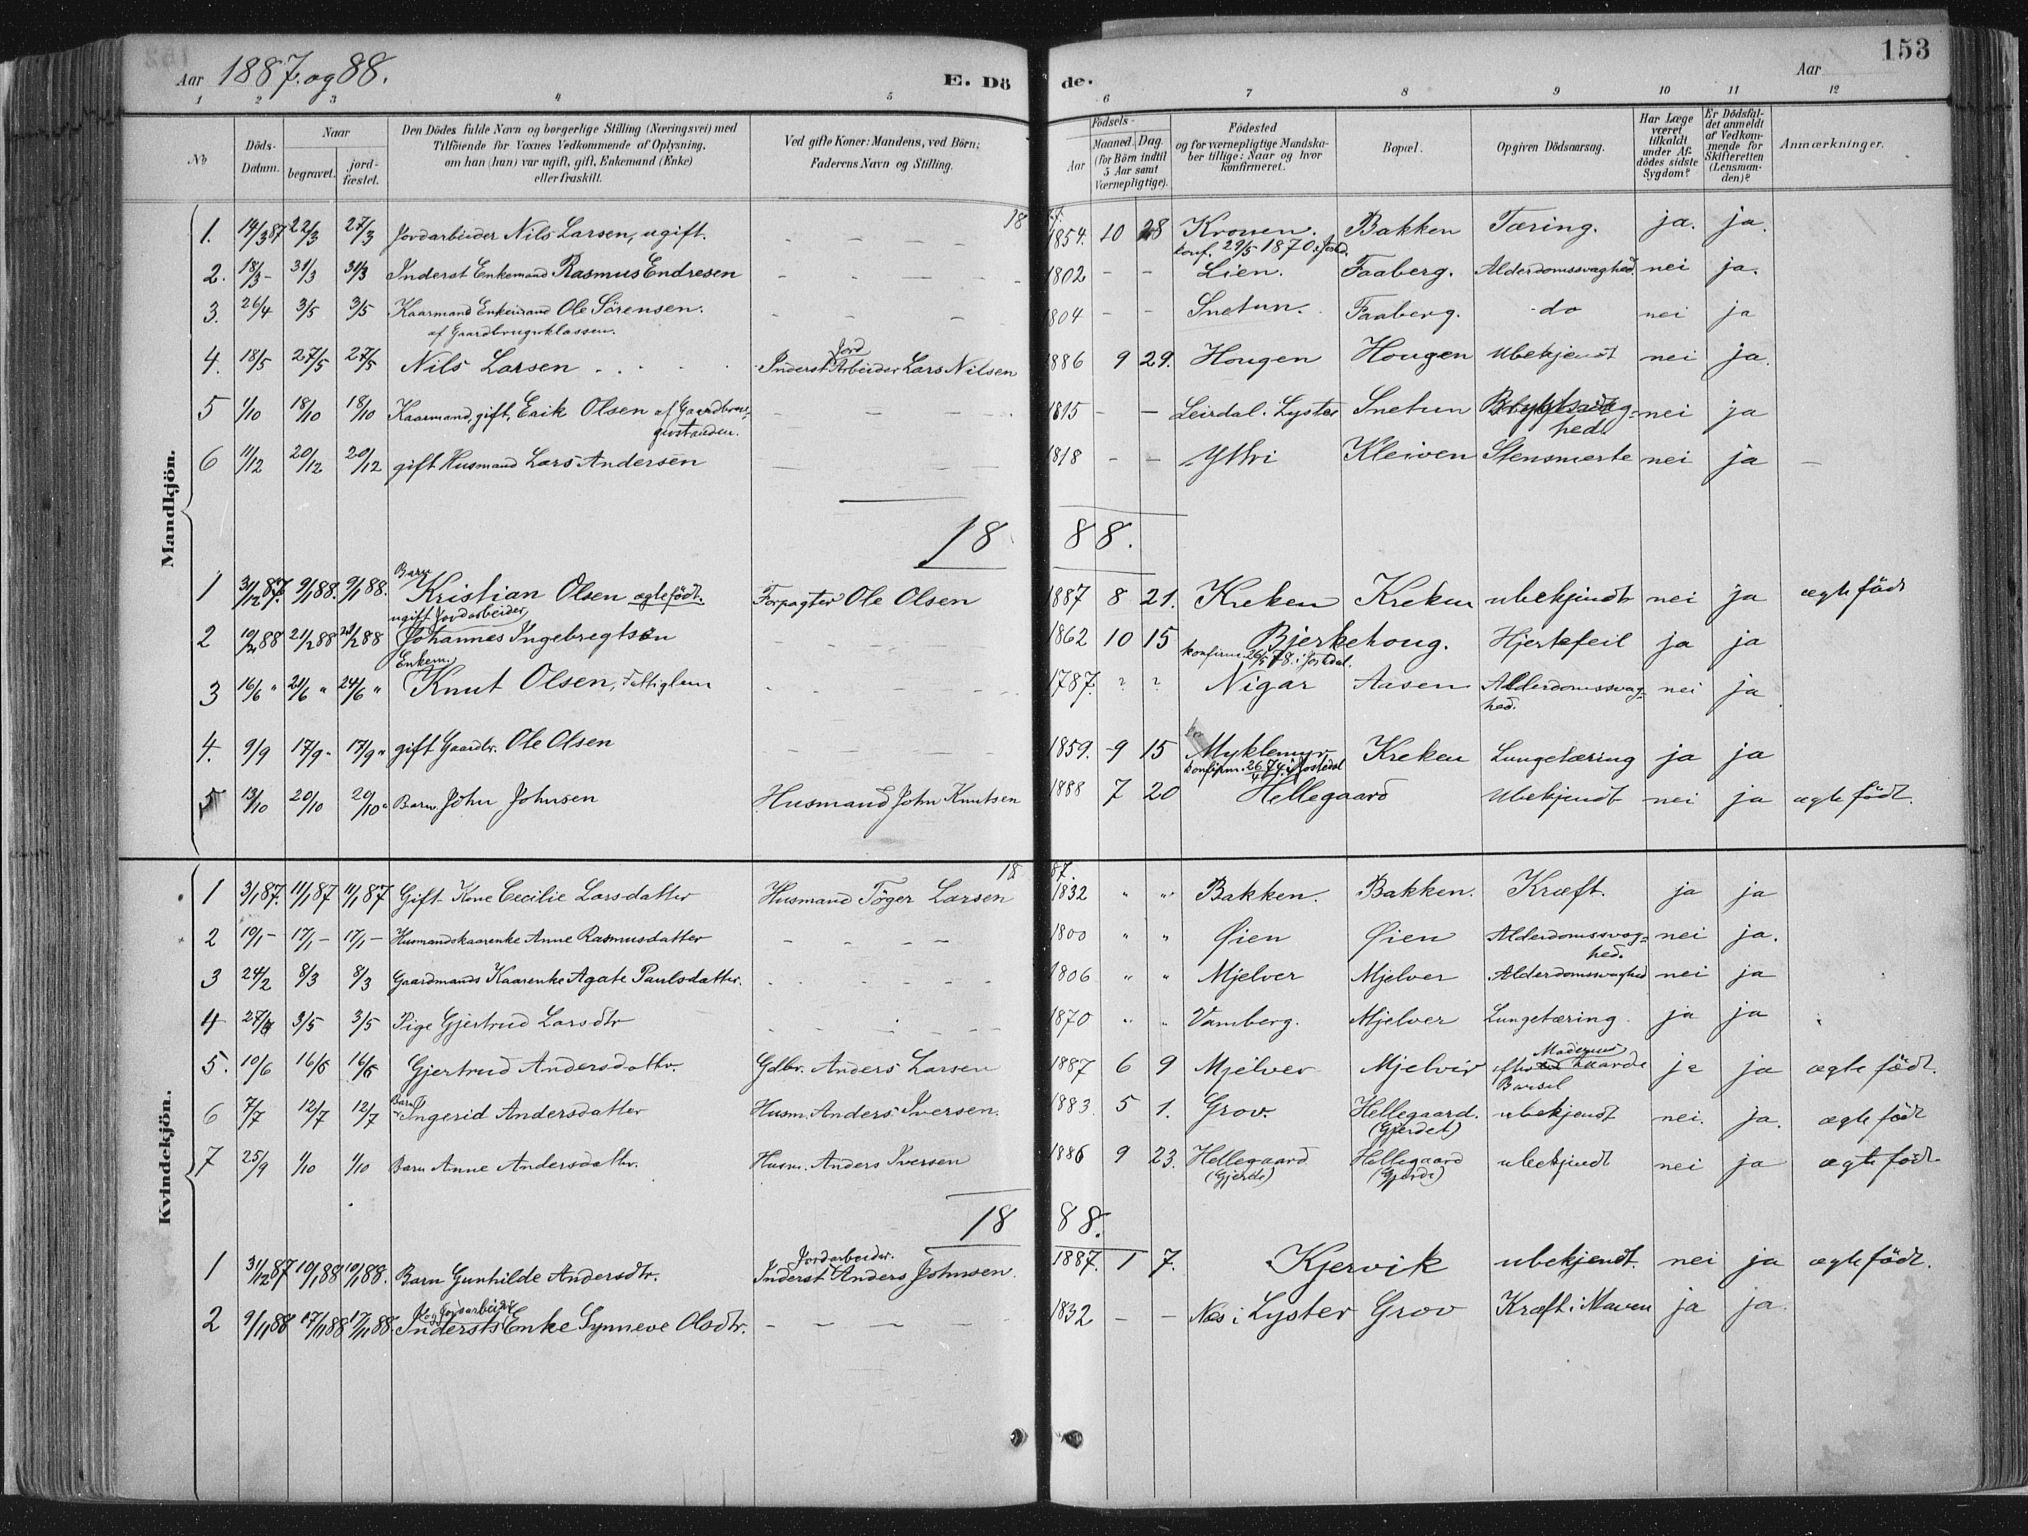 153
Aar 1887. og 88.
E. Dö
de.
Aar
1 2 3 4 5 6 7 8 9 10 11 12
No
Döds-Datum.
Naar
begravet.
jord-fæstet.
Den Dödes fulde Navn og borgerlige Stilling (Næringsvei) med
Tilföiende for Voxnes Vedkommende af Oplysning,
om han (hun) var ugift, gift, Enkemand (Enke)
eller fraskilt.
Ved gifte Koner: Mandens, ved Börn:
Faderens Navn og Stilling.
Födsels-
Aar
Maaned. Dag.
(for Börn indtil 5 Aar samt Værnepligtige).
Födested
og for værnepligtige Mandska-
ber tillige: Naar og hvor
konfirmeret.
Bopæl.
Opgiven Dödsaarsag.
Har Læge været tilkaldt under Af-dödes sidste Sygdom?
Er Dödsfal-det anmeldt af Vedkom-mende for Skifteretten (Lensman-den)?
Anmærkninger.
Mandkjön.
18 87.
1. 14/3 87 22/3 27/3 Jordarbeider Nils Larsen, ugift. – – – – 1854. 10 28 Kronen. konf. 29/5 1870 i Jostd. Bakken Tæring. ja. ja.
2. 18/3 – 31/3 31/3 Inderst Enkemand Rasmus Endresen – – – – 1802 – – Lien. Faaberg. Alderdomssvaghed. nei ja.
3. 26/4 3/5 3/5 Kaarmand Enkemand Ole Sörensen. af Gaardbrugerklassen. – – – – 1804 – – Snetun. Faaberg. do nei ja
4. 18/5 27/5 27/5 Nils Larsen . . . . Inderst Jord Arbeider Lars Nilsen 1886 9 29. Hougen Hougen Ubekjendt nei ja.
5 1/10 18/10 18/10 Kaarmand, gift, Erik Olsen af Gaardbru-gerstanden. – – – – 1815 – – Leirdal. Lyster Snetun nei ja
6 11/12 20/12 20/12 gift Husmand Lars Andersen – – – – 1818 – – Ytri Kleiven Stensmerte nei ja –
18 88.
1 31/12 87. 9/1 88. 9/1 88. Barn Kristian Olsen ægtefödt. Forpagter Ole Olsen 1887 8 21. Kreken Kreken ubekjendt nei ja ægte född
2 10/2 88 21/2 88 21/2 88 ugift Jordarbeider Johannes Ingebregtsen – – – – 1862 10 15 Bjerkehoug. konfirm. 26/5 78. i Jostdal. Hjertefeil ja ja
3 16/6 " 24/6 " 24/6 " Enkem. Knut Olsen, Fattiglem – – – – 1787. ? ? Nigar Aasen Alderdomssvag-hed. nei ja
4. 9/9 17/9 " 17/9 " gift Gaardbr. Ole Olsen – – – – 1859. 9 15 Myklemyr konfirm. 26/4 74. i Jostedal Kreken Lungetæring ja ja
5 13/10 20/10 20/10 " Barn John Johnsen Husmand John Knutsen 1888 7 20 Hellegaard Ubekjendt nei ja ægte födt.
Kvindekjön.
18 87.
1 3/1 87. 11/1 87 11/1 87 Gift Kone Cecilie Larsdatter Husmand Töger Larsen 1832 " " Bakken. Bakken. Kræft. ja ja
2 10/1 – 17/1 – 17/1 – Husmandskaarenke Anne Rasmusdatter – – – – 1800 " " Øien Øien Alderdomssvag-hed. nei ja.
3 24/2 8/3 8/3 Gaardmands Kaarenke Agate Paulsdatter. – – – – 1806 " " Mjelver Mjelver Alderdomssvaghed nei ja
4 27/4 3/5 3/5 Pige Gjertrud Larsdtr – – – – 1870 " " Vamberg. Mjelver Lungetæring. ja ja
5. 10/6 16/6 16/6 Gjertrud Andersdattr. Gdbr. Anders Larsen 1887 6 9 Mjelver Mjelvir efter Moderens Barsel ja ja ægte födt.
6 7/7 12/7 12/7 Barn Ingerid Andersdatter Husm. Anders Iversen. 1883. 5 1. Grov. Hellegaard. (Gjerdet) ubekjendt nei. ja. ægte födt
7 25/9 1/10 1/10 Barn Anne Andersdattr. Husm. Anders Iversen 1886 9 23. Hellegaard (Gjerde) Hellegaard (Gjerde) ubekjendt nei ja ægte födt.
18 88.
1 31/12 87 10/1 88 10/1 88. Barn Gunhilde Andersdtr. Jordarbeider. Inderst Anders Johnsen. 1887. 1 7. Kjervik ubekjendt. nei ja ægte födt.
2 9/11 88 17/11 88 17/11 88. og Jordarbeider Inderst's Enke Synneve Olsdtr. – – – – 1832 – – Næs i Lyster Grov Kræft i Maven ja ja.